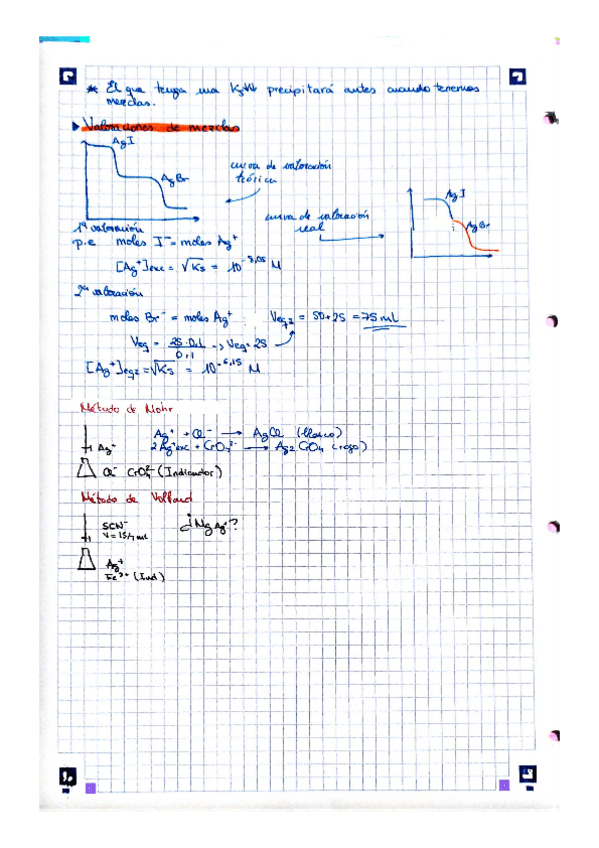 * El que tenga una Ks↓↓ precipitará antes cuando tenemos
mezclas.
▶ Valoraciones de mezclas
AgI
AgBr
curva de valoración
teórica
curva de valoración
real
AgI
AgBr
1ª valoración
p.e moles I⁻ = moles Ag⁺
[Ag⁺]exc = √Ks = 10^-8,05 M
2ª valoración
moles Br⁻ = moles Ag⁺ Veq2 = 50+25 = 75 mL
Veq = 25·0,1 / 0,1 → Veq = 25
[Ag⁺]eq2 = √Ks = 10^-6,15 M
Método de Mohr
Ag⁺ + Cl⁻ → AgCl (blanco)
2Ag⁺exc + CrO₄²⁻ → Ag₂CrO₄ (rojo)
Ag⁺
Cl⁻ CrO₄²⁻ (Indicador)
Método de Volhard
SCN⁻ ¿Mg Ag⁺?
Ag⁺
Fe³⁺ (Ind)